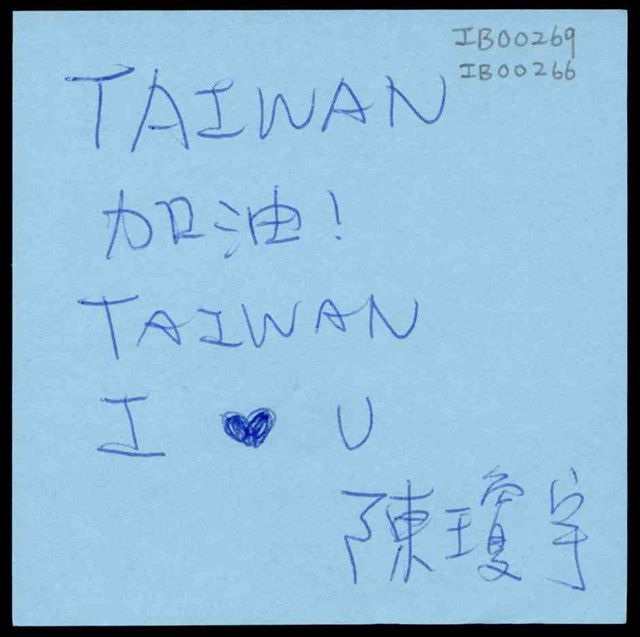 IB00269
IB00266
TAIWAN
加油!
TAIWAN
I ♥ U
陳瓊宇